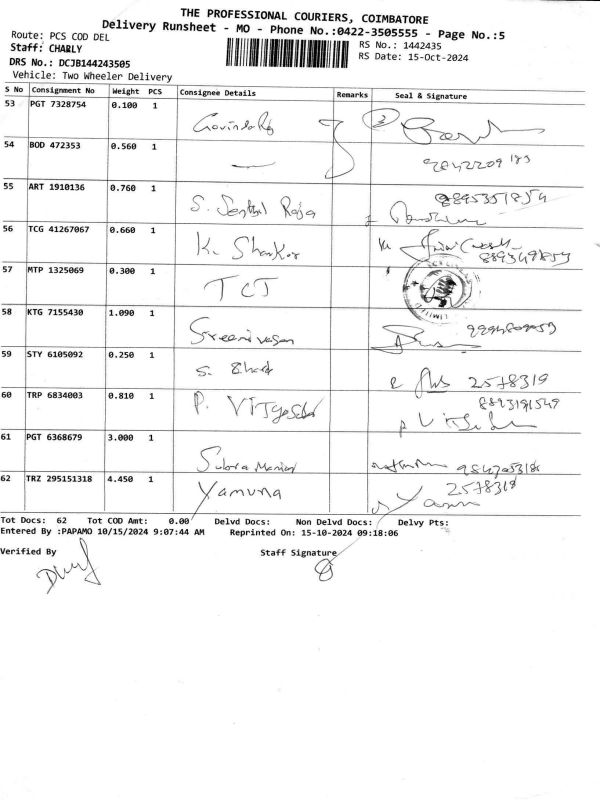 THE PROFESSIONAL COURIERS, COIMBATORE
Delivery Runsheet - MO - Phone No.:0422-3505555 - Page No.:5
Route: PCS COD DEL
RS No.: 1442435
Staff: CHARLY
RS Date: 15-Oct-2024
DRS No.: DCJB144243505
Vehicle: Two Wheeler Delivery
S No Consignment No Weight PCS Consignee Details Remarks Seal & Signature
53 PGT 7328754 0.100 1 Govindaraj
54 BOD 472353 0.560 1
55 ART 1910136 0.760 1 S. Senthil Raja
56 TCG 41267067 0.660 1 K. Shankar
57 MTP 1325069 0.300 1 TCJ
58 KTG 7155430 1.090 1 Sreenivasan
59 STY 6105092 0.250 1 S. 2578319
60 TRP 6834003 0.810 1 P. 8893191549
61 PGT 6368679 3.000 1
62 TRZ 295151318 4.450 1 Yamuna 2578318
Tot Docs: 62 Tot COD Amt: 0.00 Delvd Docs: Non Delvd Docs: Delvy Pts:
Entered By :PAPAMO 10/15/2024 9:07:44 AM Reprinted On: 15-10-2024 09:18:06
Verified By Staff Signature